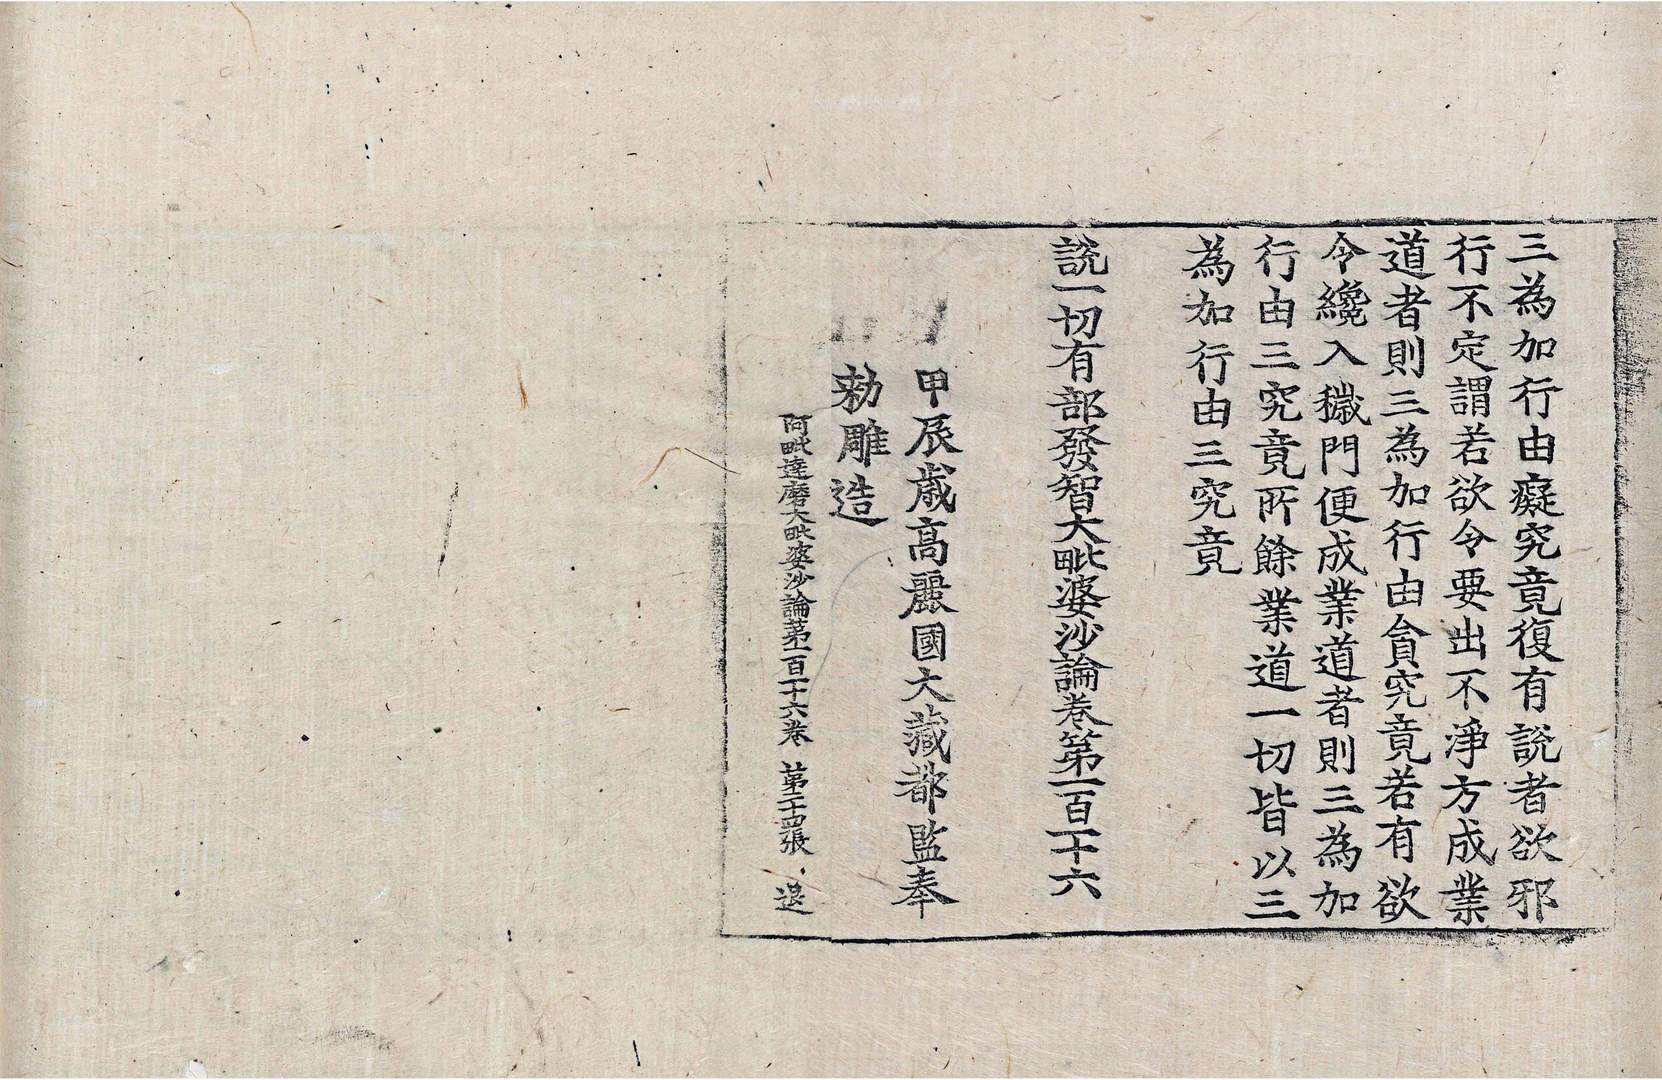 三為加行由癡究竟復有說者欲邪
行不定謂若欲令要出不淨方成業
道者則三為加行由貪究竟若有欲
令纔入穢門便成業道者則三為加
行由三究竟所餘業道一切皆以三
為加行由三究竟
說一切有部發智大毗婆沙論卷第一百一十六
甲辰歲高麗國大藏都監奉
勅雕造
阿毗達磨大毗婆沙論第一百一十六卷 第二十四張 退